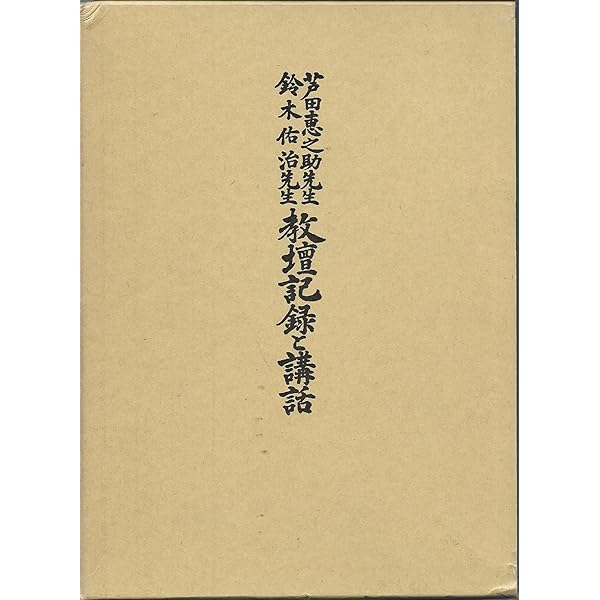 芦田恵之助先生
鈴木佑治先生
教壇記録と講話